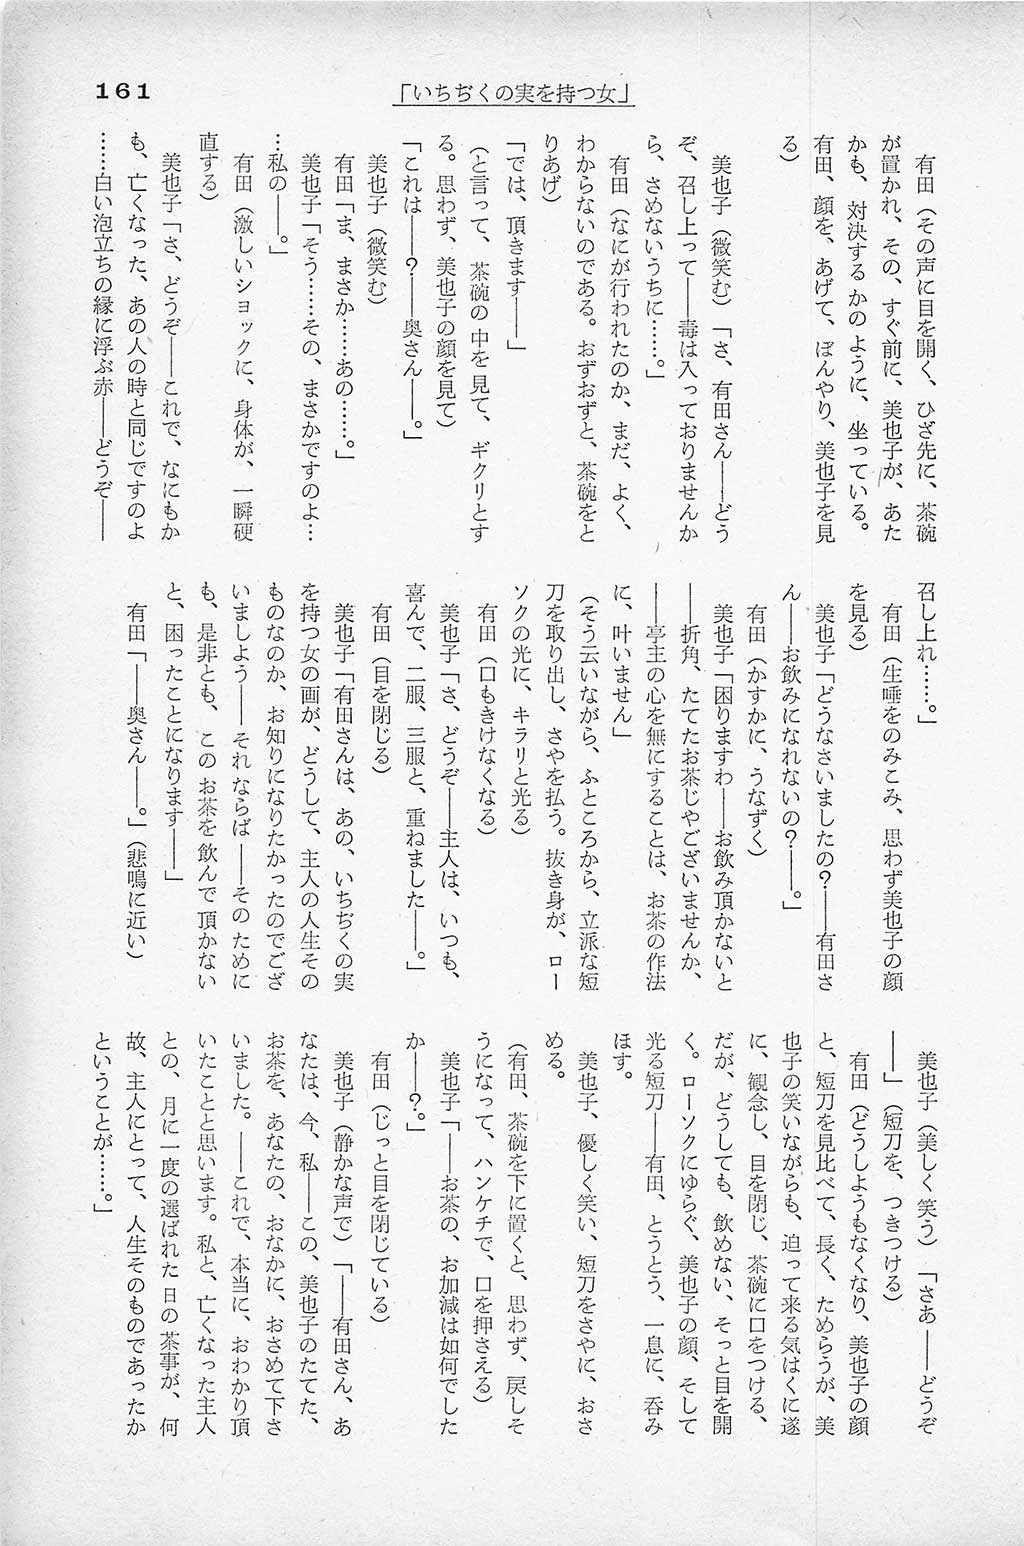 161
「いちぢくの実を持つ女」
有田（その声に目を開く、ひざ先に、茶碗
が置かれ、その、すぐ前に、美也子が、あた
かも、対決するかのように、坐っている。
有田、顔を、あげて、ぼんやり、美也子を見
る）
美也子（微笑む）「さ、有田さん――どう
ぞ、召し上って――毒は入っておりませんか
ら、さめないうちに……。」
有田（なにが行われたのか、まだ、よく、
わからないのである。おずおずと、茶碗をと
りあげ）
「では、頂きます――」
（と言って、茶碗の中を見て、ギクリとす
る。思わず、美也子の顔を見て）
「これは――？――奥さん――。」
美也子（微笑む）
有田「ま、まさか……あの……。」
美也子「そう……その、まさかですのよ…
…私の――。」
有田（激しいショックに、身体が、一瞬硬
直する）
美也子「さ、どうぞ――これで、なにもか
も、亡くなった、あの人の時と同じですのよ
……白い泡立ちの縁に浮ぶ赤――どうぞ――
召し上れ……。」
有田（生唾をのみこみ、思わず美也子の顔
を見る）
美也子「どうなさいましたの？――有田さ
ん――お飲みになれないの？――。」
有田（かすかに、うなずく）
美也子「困りますわ――お飲み頂かないと
――折角、たてたお茶じやございませんか、
――亭主の心を無にすることは、お茶の作法
に、叶いません」
（そう云いながら、ふところから、立派な短
刀を取り出し、さやを払う。抜き身が、ロー
ソクの光に、キラリと光る）
有田（口もきけなくなる）
美也子「さ、どうぞ――主人は、いつも、
喜んで、二服、三服と、重ねました――。」
有田（目を閉じる）
美也子「有田さんは、あの、いちぢくの実
を持つ女の画が、どうして、主人の人生その
ものなのか、お知りになりたかったのでござ
いましよう――それならば――そのために
も、是非とも、このお茶を飲んで頂かない
と、困ったことになります――」
有田「――奥さん――。」（悲鳴に近い）
美也子（美しく笑う）「さあ――どうぞ
――」（短刀を、つきつける）
有田（どうしようもなくなり、美也子の顔
と、短刀を見比べて、長く、ためらうが、美
也子の笑いながらも、迫って来る気はくに遂
に、観念し、目を閉じ、茶碗に口をつける、
だが、どうしても、飲めない、そっと目を開
く。ローソクにゆらぐ、美也子の顔、そして
光る短刀――有田、とうとう、一息に、呑み
ほす。
美也子、優しく笑い、短刀をさやに、おさ
める。
（有田、茶碗を下に置くと、思わず、戻しそ
うになって、ハンケチで、口を押さえる）
美也子「――お茶の、お加減は如何でした
か――？。」
有田（じっと目を閉じている）
美也子（静かな声で）「――有田さん、あ
なたは、今、私――この、美也子のたてた、
お茶を、あなたの、おなかに、おさめて下さ
いました。――これで、本当に、おわかり頂
いたことと思います。私と、亡くなった主人
との、月に一度の選ばれた日の茶事が、何
故、主人にとって、人生そのものであったか
ということが……。」